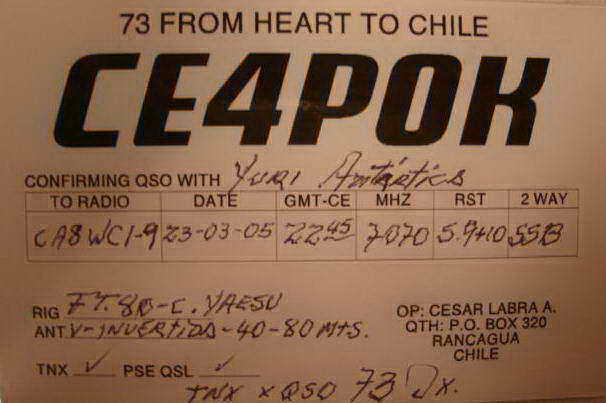 73 FROM HEART TO CHILE
CE4POK
CONFIRMING QSO WITH Yuri Antártica
TO RADIO DATE GMT-CE MHZ RST 2 WAY
CA8WCI-9 23-03-05 2245 7070 5.9+10 SSB
RIG FT.80-C. YAESU
ANT V-INVERTIDA-40-80MTS.
OP: CESAR LABRA A.
QTH: P.O. BOX 320
RANCAGUA
CHILE
TNX ✓ PSE QSL ✓
TNX x QSO 73 Dx.